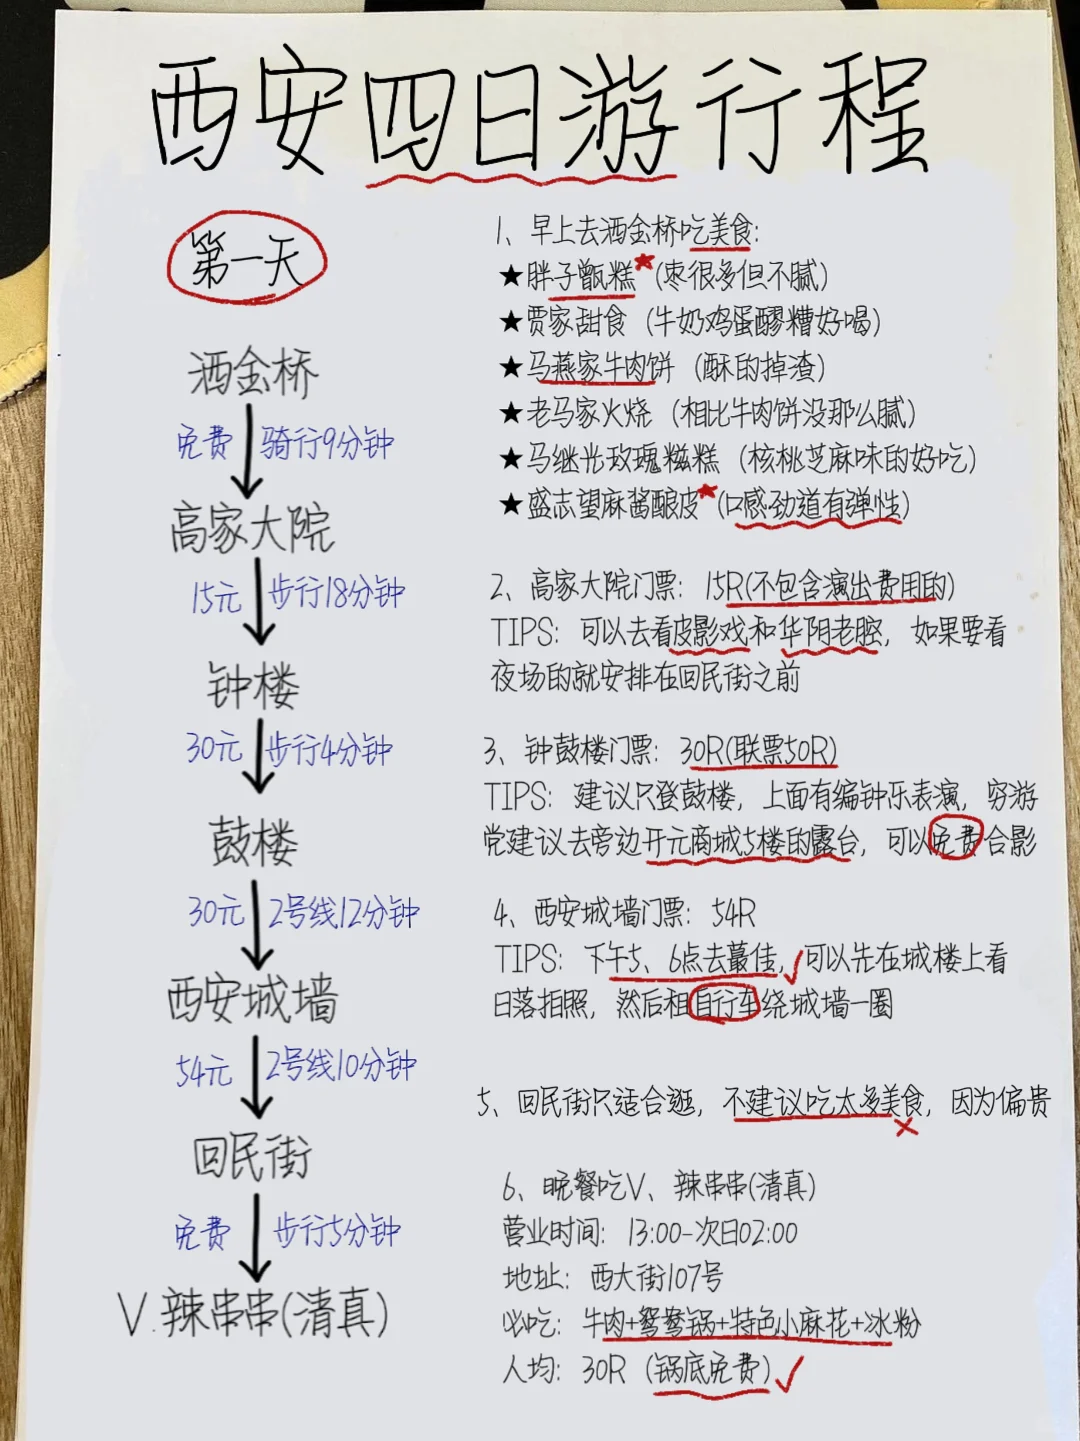 西安四日游行程
第一天
洒金桥
免费 骑行9分钟
高家大院
15元 步行18分钟
钟楼
30元 步行4分钟
鼓楼
30元 2号线12分钟
西安城墙
54元 2号线10分钟
回民街
免费 步行5分钟
V.辣串串(清真)
1、早上去洒金桥吃美食:
★胖子甑糕★(枣很多但不腻)
★贾家甜食 (牛奶鸡蛋醪糟好喝)
★马燕家牛肉饼 (酥的掉渣)
★老马家火烧 (相比牛肉饼没那么腻)
★马继光玫瑰糍糕 (核桃芝麻味的好吃)
★盛志望麻酱酿皮★(口感劲道有弹性)
2、高家大院门票: 15R(不包含演出费用的)
TIPS: 可以去看皮影戏和华阴老腔, 如果要看
夜场的就安排在回民街之前
3、钟鼓楼门票: 30R(联票50R)
TIPS: 建议只登鼓楼, 上面有编钟乐表演, 穷游
党建议去旁边开元商城5楼的露台, 可以免费合影
4、西安城墙门票: 54R
TIPS: 下午5、6点去最佳, 可以先在城楼上看
日落拍照, 然后租自行车绕城墙一圈
5、回民街只适合逛, 不建议吃太多美食, 因为偏贵
6、晚餐吃V、辣串串(清真)
营业时间: 13:00-次日02:00
地址: 西大街107号
必吃: 牛肉+鸳鸯锅+特色小麻花+冰粉
人均: 30R (锅底免费)